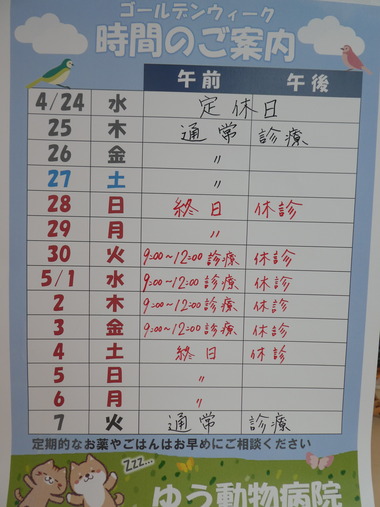 ゴールデンウィーク
時間のご案内
午前 午後
4/24 水 定休日
25 木 通常 診療
26 金 〃
27 土 〃
28 日 終日 休診
29 月 〃
30 火 9:00~12:00診療 休診
5/1 水 9:00~12:00診療 休診
2 木 9:00~12:00診療 休診
3 金 9:00~12:00診療 休診
4 土 終日 休診
5 日 〃
6 月 〃
7 火 通常 診療
定期的なお薬やごはんはお早めにご相談ください
Zzz...
ゆう動物病院